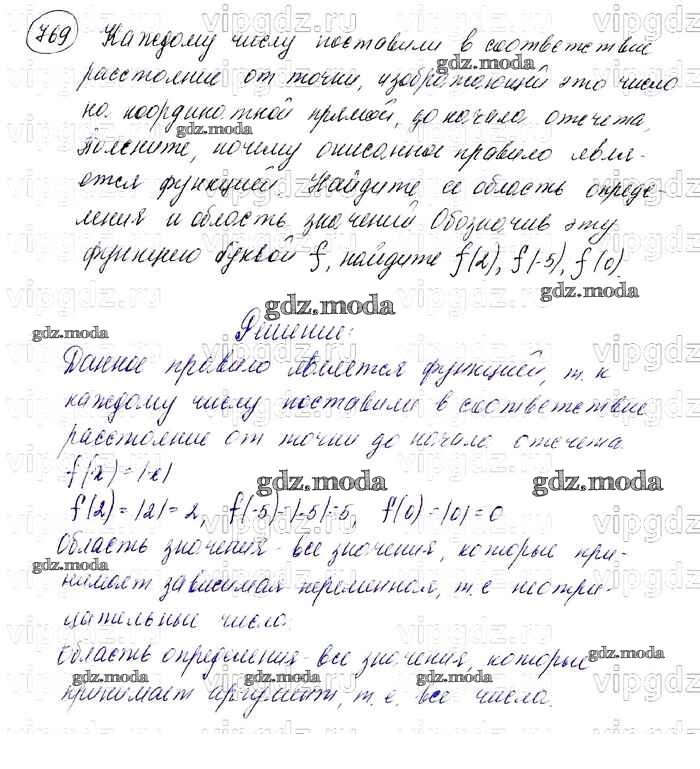 769 Каждому числу поставили в соответствие
расстояние от точки, изображающей это число
на координатной прямой, до начала отсчета,
gdz.moda
Поясните, почему описанное правило явля-
ется функцией. Найдите ее область опреде-
ления и область значений. Обозначив эту
функцию буквой f, найдите f(2), f(-5), f(0).
gdz.moda
Решение:
Данное правило является функцией, т. к
каждому числу поставили в соответствие
расстояние от точки до начала отсчета.
f(x) = |x|
gdz.moda
f(2) = |2| = 2, f(-5)=|-5|=5, f(0)=|0|=0
Область значения - все значения, которые при-
gdz.moda
нимает зависимая переменная, т. е неотри-
цательные числа.
Область определения - все значения, которые
gdz.moda
принимает аргумент, т. е. все числа.
gdz.moda
vipgdz.ru